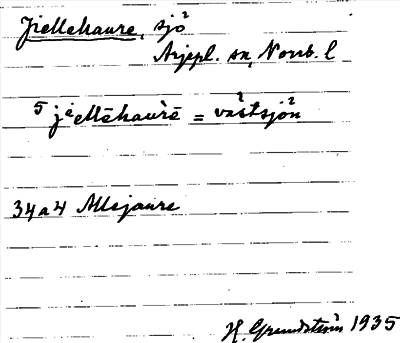 Jiellehaure, sjö
Arjepl. sn, Norrb. l
5 jiellēhau̇rē = västsjön
34a4 Allejaure
H. Grundström 1935